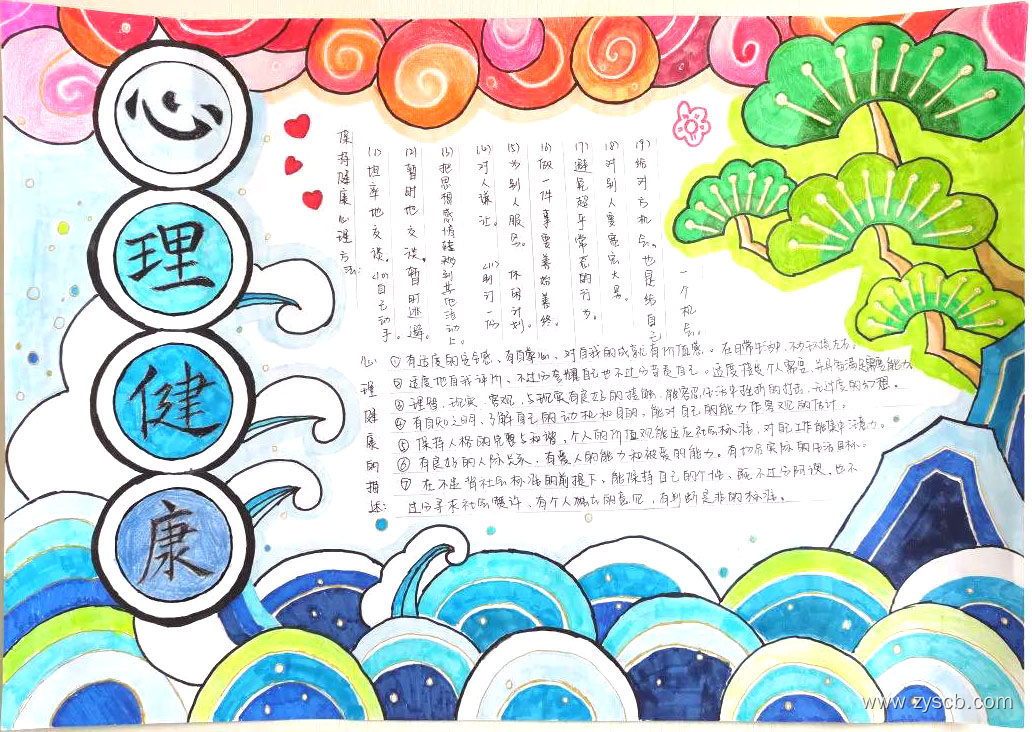 心
理
健
康
保持健康心理方法:
(1) 坦率地交谈。
(2) 暂时地交谈。暂时逃避。
(3) 把思想感情转移到其他活动上。
(4) 对人谦让。
(5) 为别人服务。
(6) 做一件事要善始善终。
(7) 避免超乎常态的行为。
(8) 对别人要宽宏大量。
(9) 给对方机会。也是给自己一个机会。
(10) 自己动手。
(11) 制订一份休闲计划。
心理健康的描述:
① 有适度的安全感、有自尊心、对自我的成就有所值感。在日常生活中,不
② 适度地自我评所、不过分夸耀自己也不过分苛责自己。适度接受个人需要、并具有满足需要能力
③ 理智、现实、客观、与现实有良好的接触、能容忍生活中挫折的打击、无过度的幻想。
④ 有自知之明,了解自己的动机和目的,能对自己的能力作客观的估计。
⑤ 保持人格的完整与和谐、个人的价值观能适应社会标准、对自己工作能集中注意力。
⑥ 有良好的人际关系、有爱人的能力和被爱的能力。有切合实际的生活目标。
⑦ 在不违背社会标准的前提下、能保持自己的个性、既不过分阿谀、也不
过分寻求社会赞许、有个人独立的意见、有判断是非的标准。
www.zyscb.com